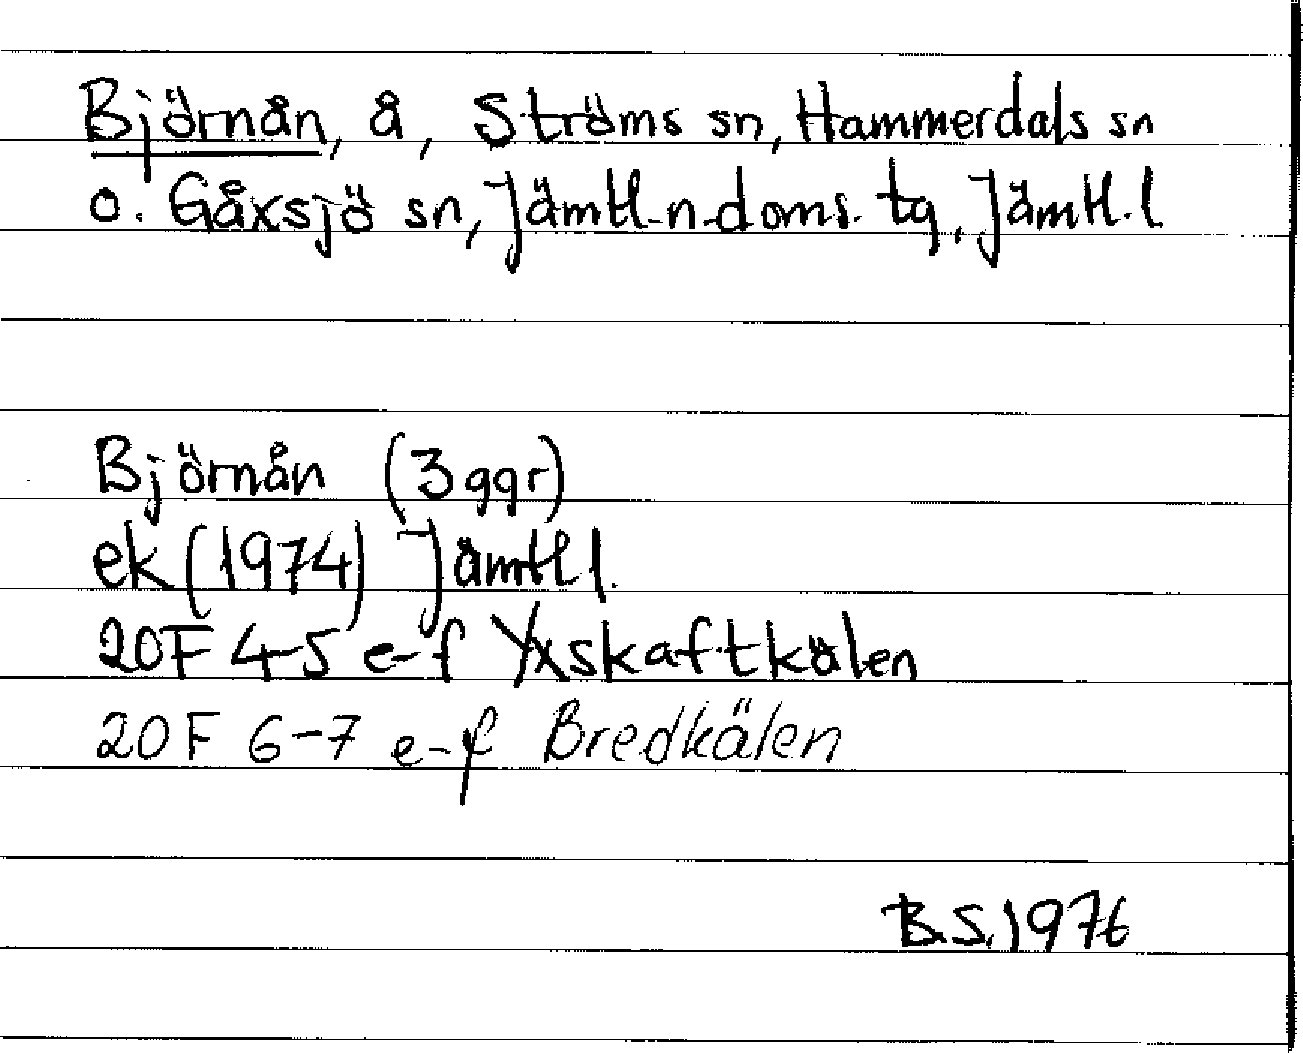 Björnån, å, Ströms sn, Hammerdals sn
o. Gåxsjö sn, Jämtl.n.doms. tg, Jämtl.l
Björnån (3ggr)
ek (1974) Jämtl l.
20F 4-5 e-f Yxskaftkälen
20F 6-7 e-f Bredkälen
B.S.1976